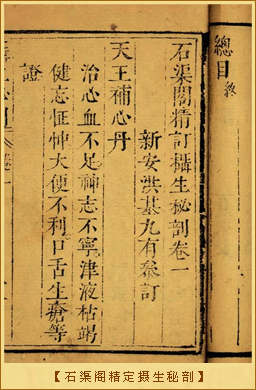 總目終
石渠閣精訂攝生秘剖卷一
新安洪基九有叅訂
天王補心丹
治心血不足神志不寧津液枯竭
健忘怔忡大便不利口舌生瘡等
證
【石渠阁精定摄生秘剖】